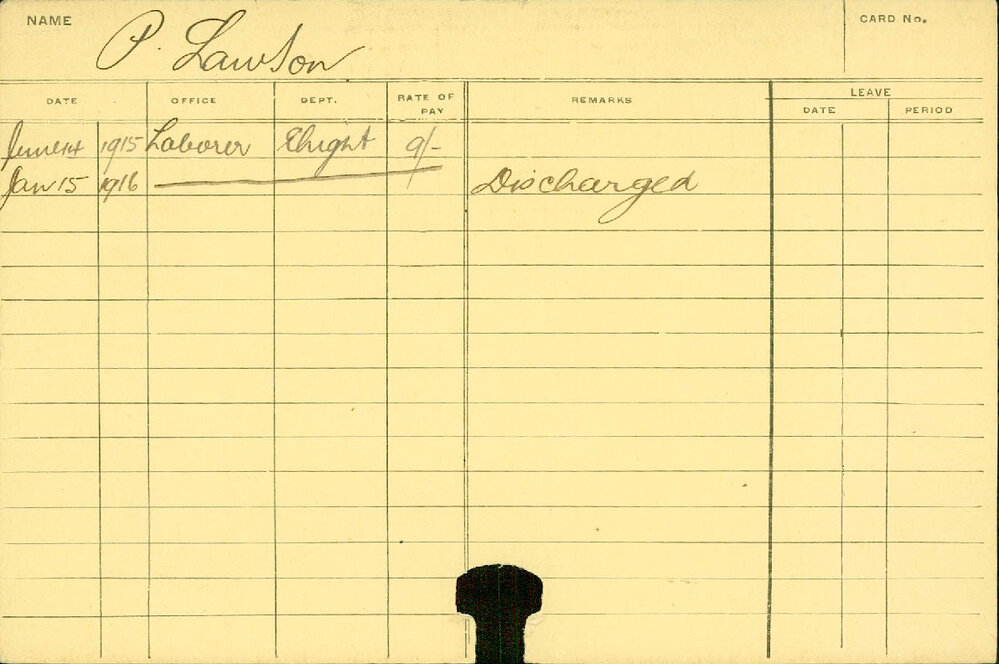 NAME P. Lawson CARD No.
DATE OFFICE DEPT. RATE OF PAY REMARKS LEAVE
DATE PERIOD
1915 Laborer 9/-
Jan 15 1916 Discharged